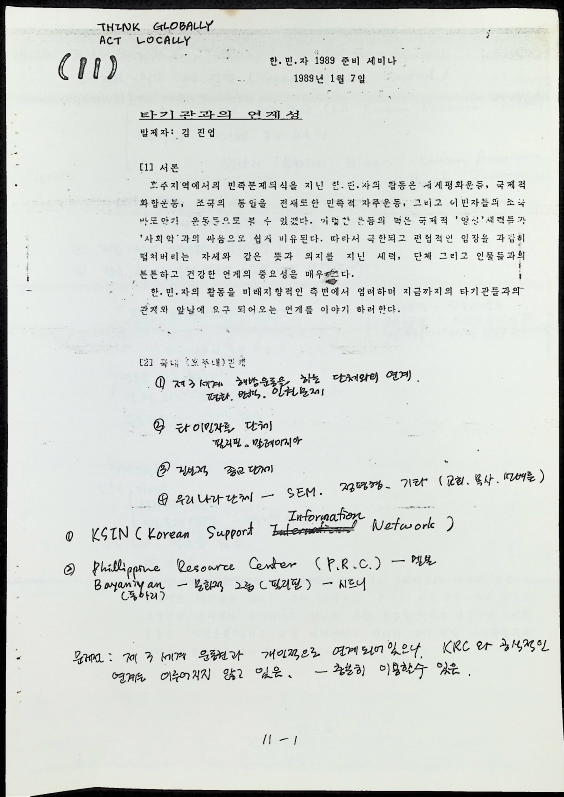 THINK GLOBALLY
ACT LOCALLY
(11)
한.민.자 1989 준비 세미나
1989년 1월 7일
타기관과의 연계성
발제자: 김 진엽
[1] 서론
호주지역에서의 민족문제의식을 지닌 한.민.자의 활동은 세계평화운동, 국제적
화합운동, 조국의 통일을 전제로한 민족적 자주운동, 그리고 이민자들의 조국
바로알기 운동등으로 볼 수 있겠다. 이렇한 운동의 맥은 국제적
'사회악'과의 싸움으로 쉽게 비유된다. 따라서 국한되고 편협적인 입장을 과감히
떨쳐버리는 자세와 같은 뜻과 의지를 지닌 세력, 단체 그리고 인물들과의
튼튼하고 건강한 연계의 중요성을 매우 다.
한.민.자의 활동을 미래지향적인 측면에서 염려하며 지금까지의 타기관들과의
관계와 앞날에 요구 되어오는 연계를 이야기 하려한다.
[2] 국내 (호주내)
① 제3세계 해방운동을 하는 단체와의 연계.
평화. 인권문제
② 타 이민자들 단체
필리핀. 말레이지아
③ 진보적 종교단체
④ 우리나라 단체 — SEM. 기타 (교회. 목사.
① KSIN (Korean Support Information Network)
② Phillippine Resource Center (P.R.C.) — 멜본
Bayanihan — 문화적 그룹 (필리핀) — 시드니
(동아리)
문제점: 제3세계 운동권과 개인적으로 연계되어있으나, KRC와 공식적인
연계는 이루어지지 않고 있음. — 충분히 이용할수 있음.
11 - 1